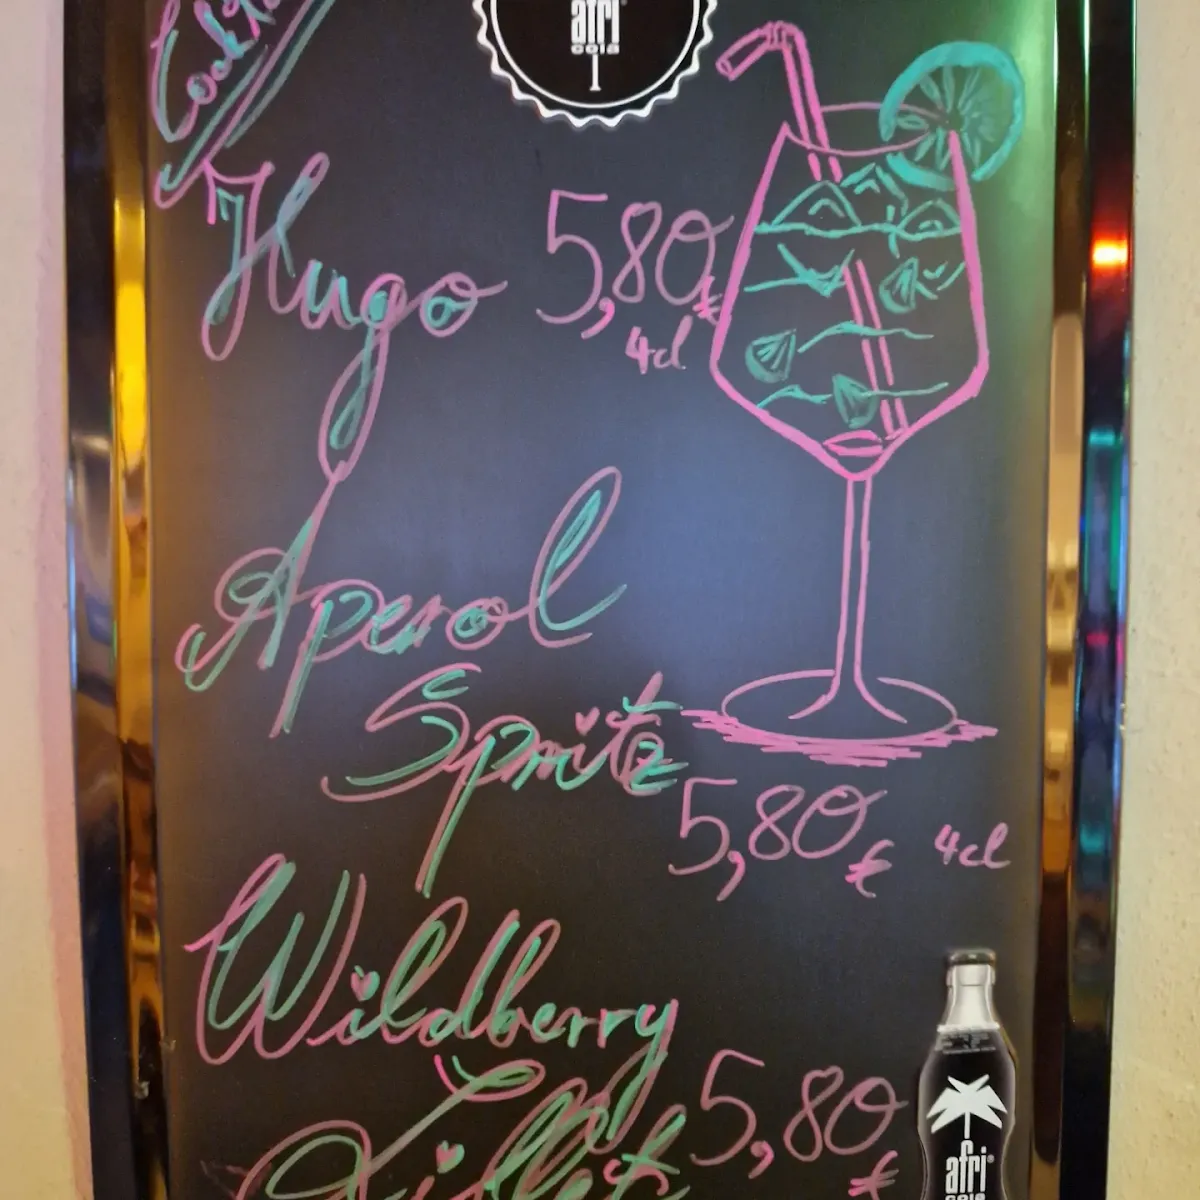 Cockta
afri
cola
Hugo 5,80 €
4cl
Aperol
Spritz
5,80 € 4cl
Wildberry
Lillet 5,80 €
afri
cola